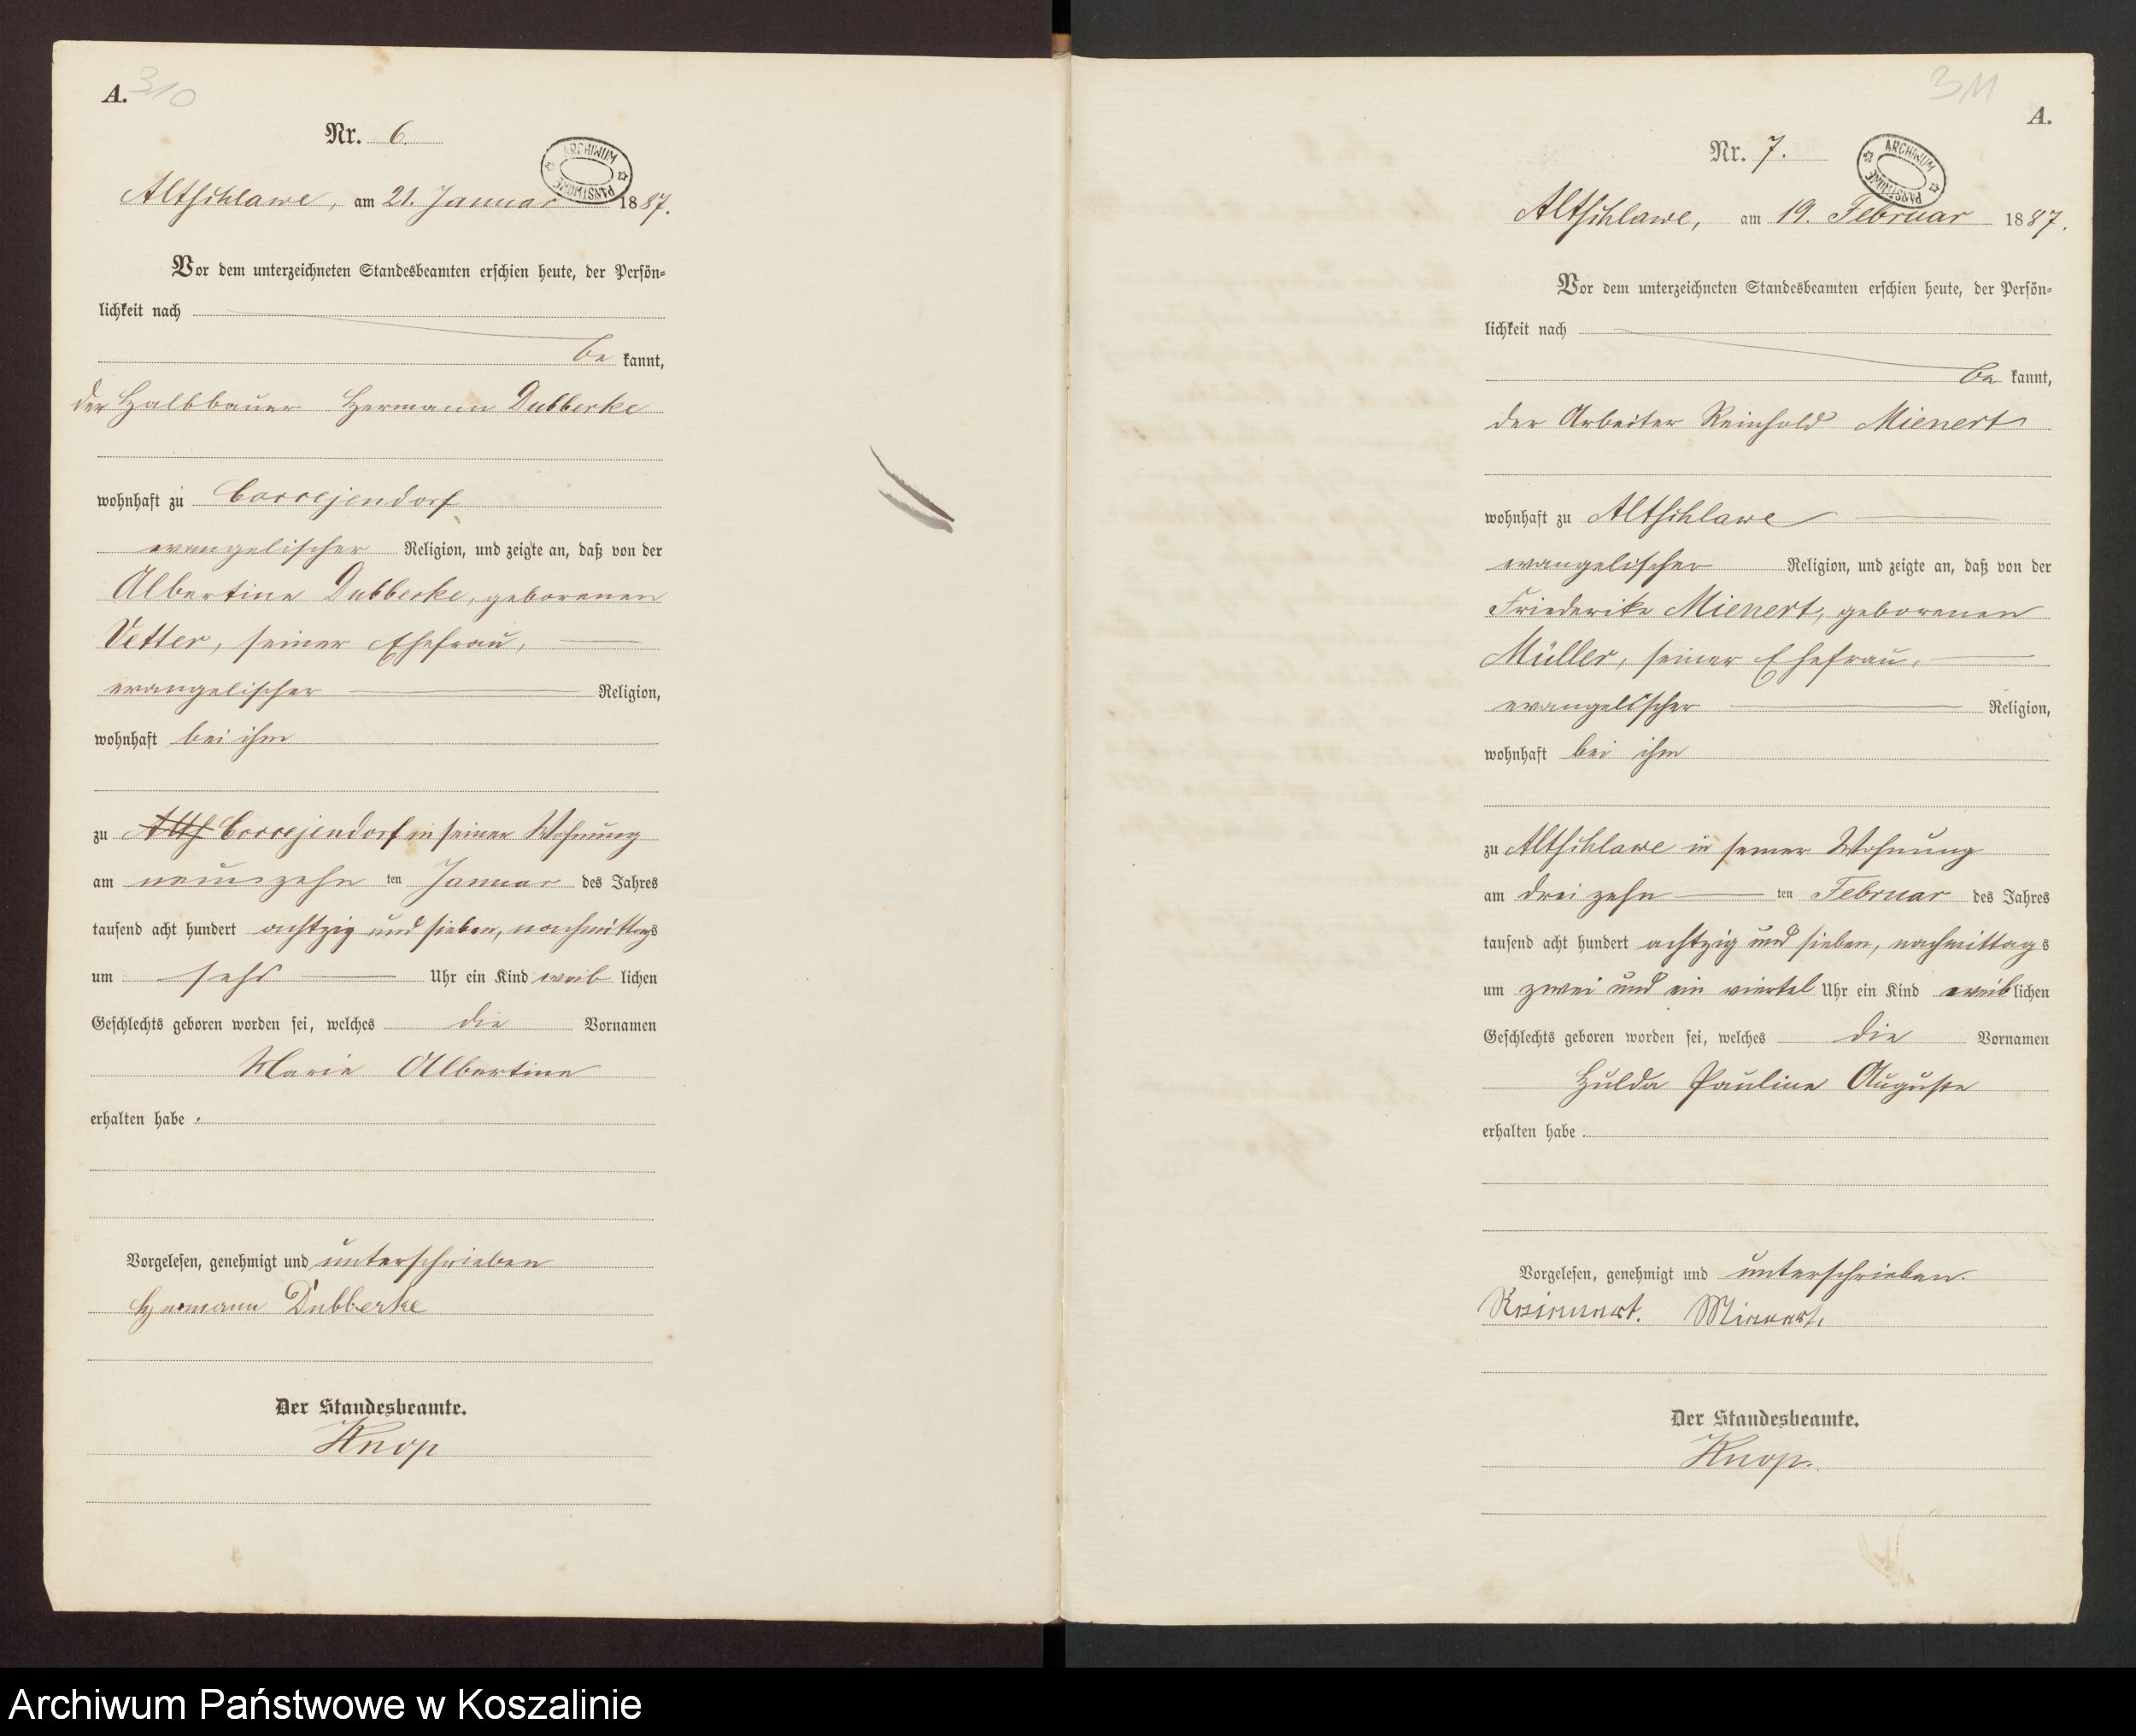 A. 310
Nr. 6.
ARCHIWUM PAŃSTWOWE
Altschlawe, am 21. Januar 1887.
Vor dem unterzeichneten Standesbeamten erschien heute, der Persön-
lichkeit nach
be kannt,
der Halbbauer Hermann Dubberke
wohnhaft zu Coccejendorf
evangelischer Religion, und zeigte an, daß von der
Albertine Dubberke, geborenen
Vetter, seiner Ehefrau,
evangelischer Religion,
wohnhaft bei ihm
zu Altsch Coccejendorf in seiner Wohnung
am neunzehn ten Januar des Jahres
tausend acht hundert achtzig und sieben, nachmittags
um sechs Uhr ein Kind weib lichen
Geschlechts geboren worden sei, welches die Vornamen
Marie Albertine
erhalten habe.
Vorgelesen, genehmigt und unterschrieben
Hermann Dubberke
Der Standesbeamte.
Knop
311
A.
Nr. 7.
ARCHIWUM PAŃSTWOWE
Altschlawe, am 19. Februar 1887.
Vor dem unterzeichneten Standesbeamten erschien heute, der Persön-
lichkeit nach
be kannt,
der Arbeiter Reinhold Mienert
wohnhaft zu Altschlawe
evangelischer Religion, und zeigte an, daß von der
Friederike Mienert, geborenen
Müller, seiner Ehefrau,
evangelischer Religion,
wohnhaft bei ihm
zu Altschlawe in seiner Wohnung
am drei zehn ten Februar des Jahres
tausend acht hundert achtzig und sieben, nachmittags
um zwei und ein viertel Uhr ein Kind weib lichen
Geschlechts geboren worden sei, welches die Vornamen
Hulda Pauline Auguste
erhalten habe.
Vorgelesen, genehmigt und unterschrieben.
Mienert.
Der Standesbeamte.
Knop.
Archiwum Państwowe w Koszalinie